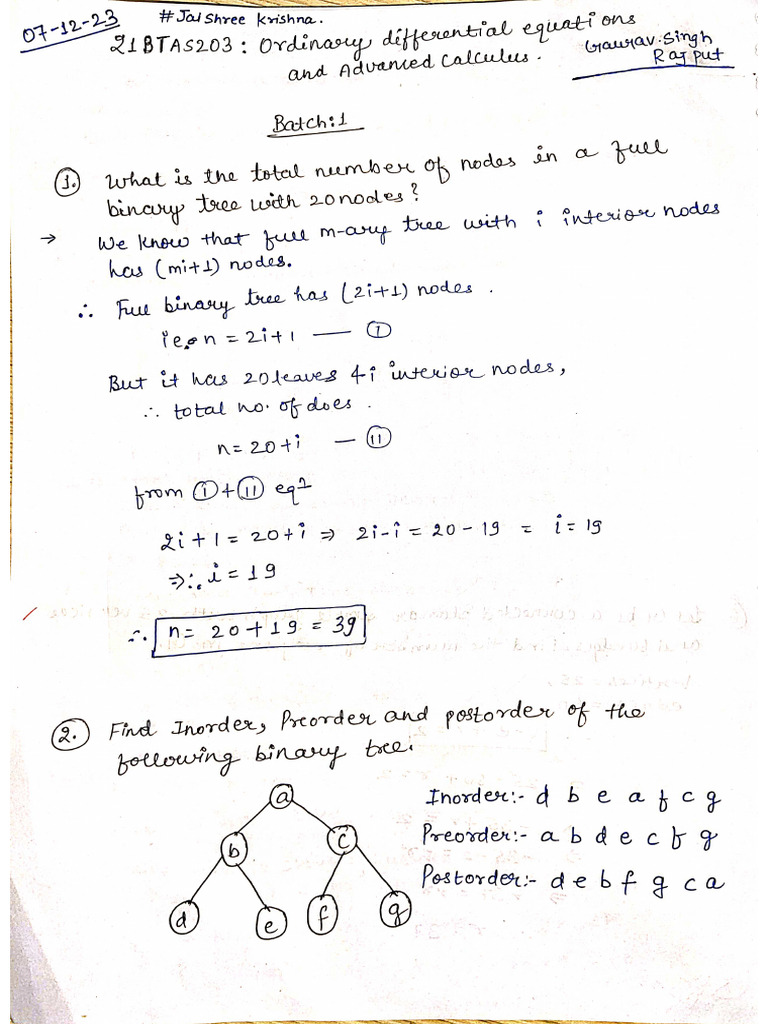 07-12-23
# Jai Shree Krishna.
21BTAS203 : Ordinary differential equations
and Advanced Calculus.
Gaurav Singh
Rajput
Batch:1
1. What is the total number of nodes in a full
binary tree with 20 nodes?
→ We know that full m-ary tree with i interior nodes
has (mi+1) nodes.
∴ Full binary tree has (2i+1) nodes.
ie. n = 2i+1 — I
But it has 20 leaves & i interior nodes,
∴ total no. of does.
n = 20+i — II
from I + II eqn
2i + 1 = 20+i ⇒ 2i-i = 20 - 19 = i = 19
⇒ ∴ i = 19
∴ n = 20 + 19 = 39
2. Find Inorder, Preorder and postorder of the
following binary tree.
a
b c
d e f g
Inorder:- d b e a f c g
Preorder:- a b d e c f g
Postorder:- d e b f g c a